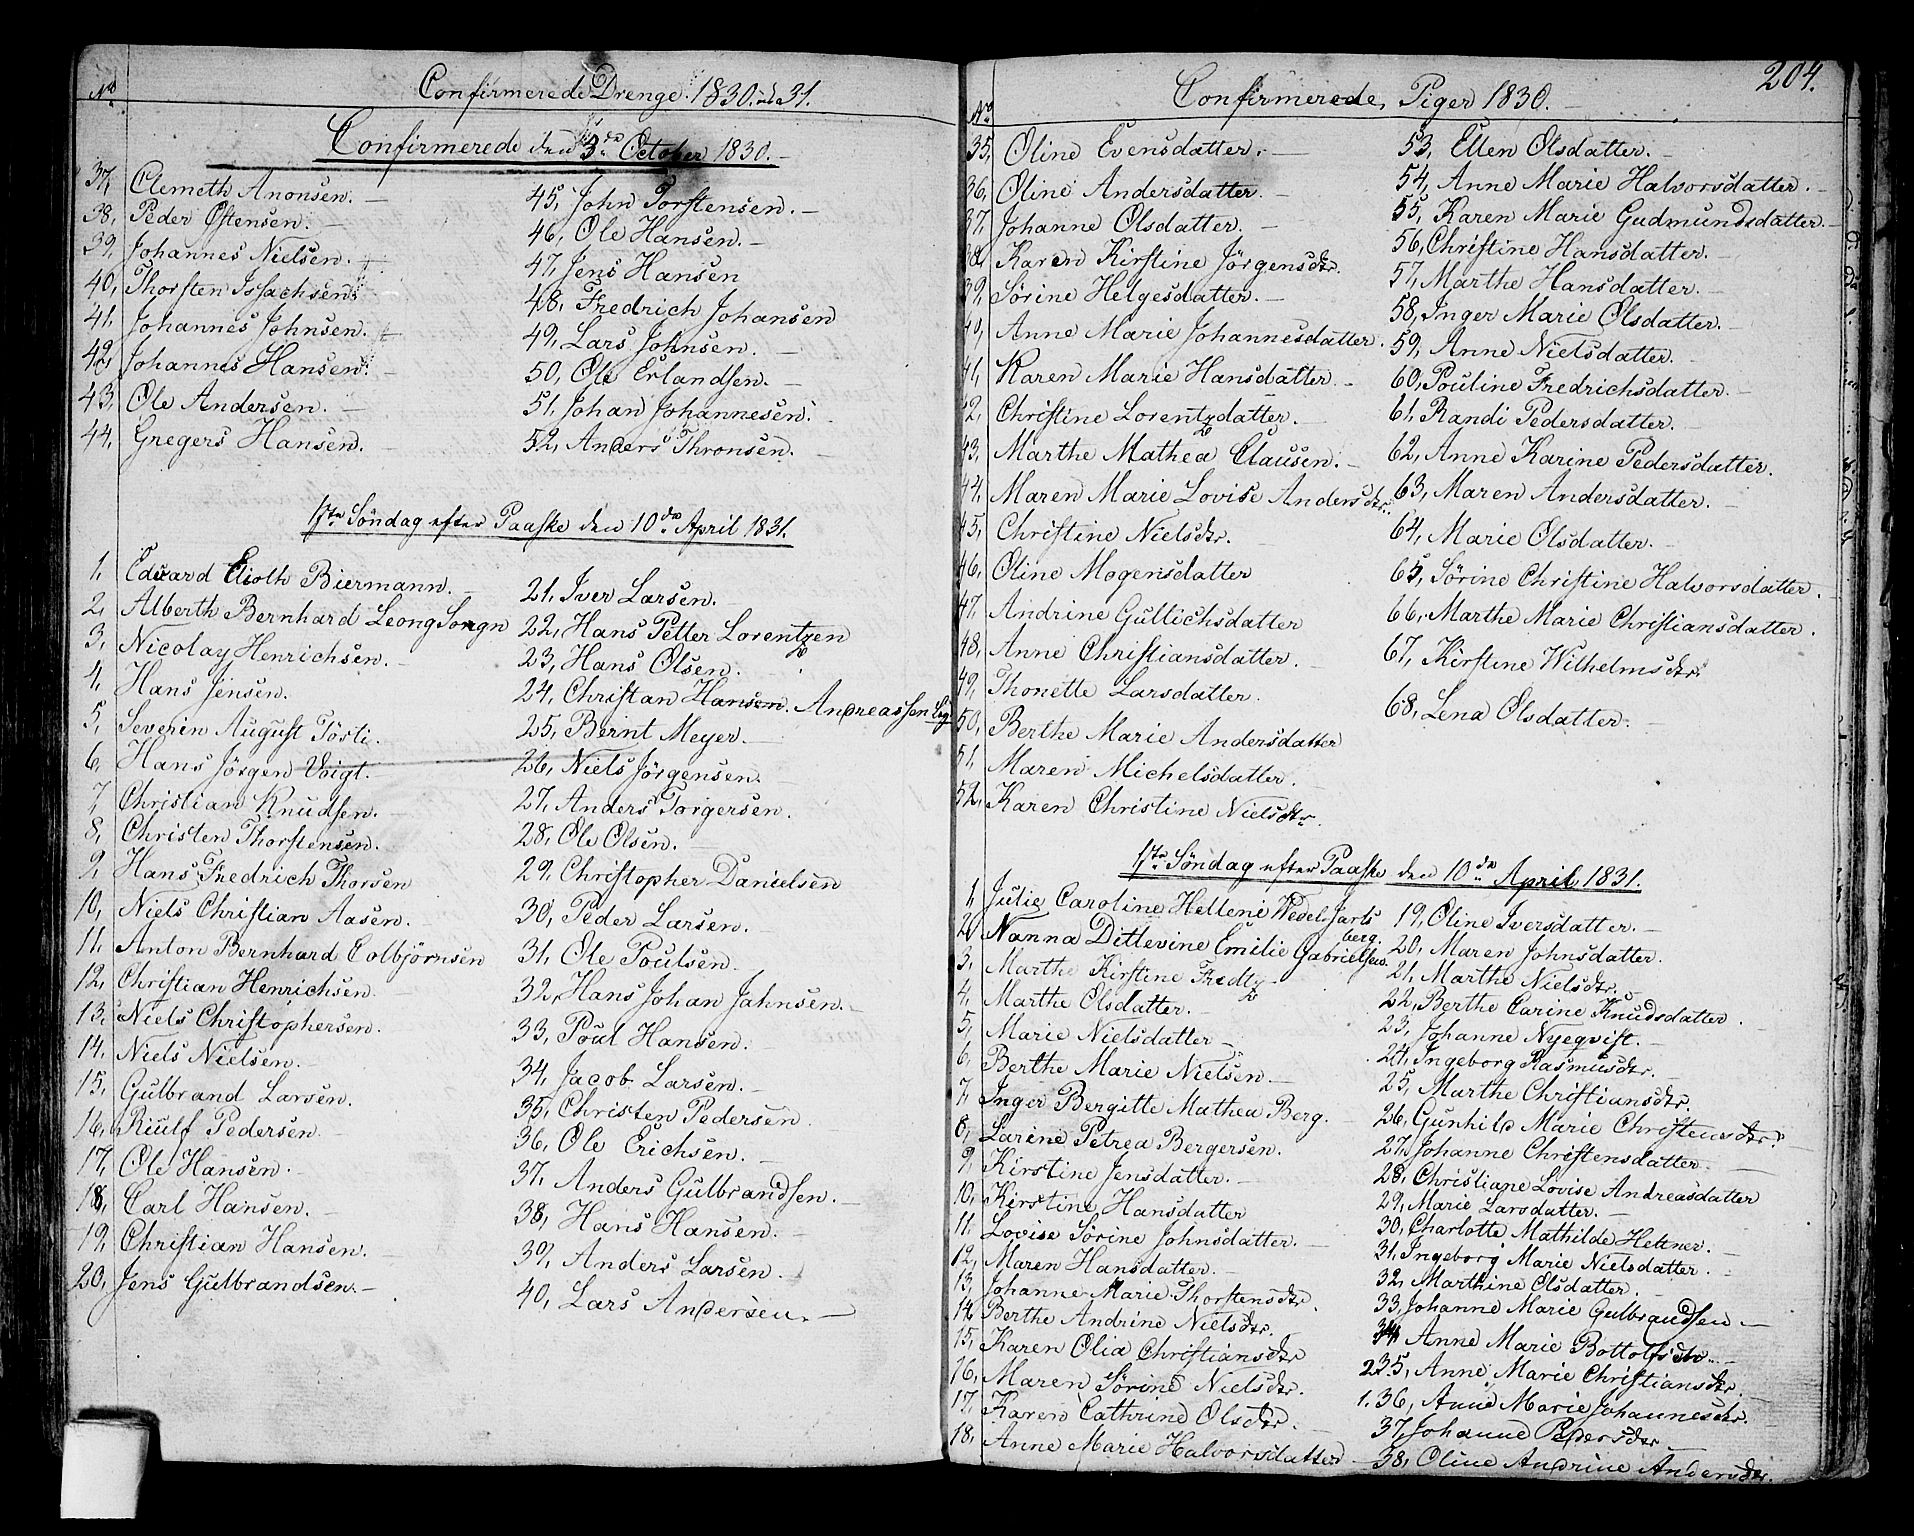 Confirmerede Drenge 1830 og 31.
No
Confirmerede den 3die October 1830.
37, Clemeth Anonsen.
38, Peder Østensen.
39, Johannes Nielsen.
40, Thorsten Issachsen.
41, Johannes Johnsen.
42, Johannes Hansen.
43, Ole Andersen.
44, Gregers Hansen.
45, John Torstensen.
46, Ole Hansen.
47, Jens Hansen
48, Fredrich Johansen
49, Lars Johnsen.
50, Ole Erlandsen.
51, Johan Johannesen.
52, Anders Thronsen.
1ste Söndag efter Paaske den 10de April 1831.
1, Edvard Elioth Biermann.
2, Alberth Bernhard Leong Sorgn
3, Nicolay Henrichsen.
4, Hans Jensen.
5, Severin August Törti.
6, Hans Jörgen Voigt.
7, Christian Knudsen.
8, Christen Thorstensen.
9, Hans Fredrich Thorsen
10, Niels Christian Aasen.
11, Anton Bernhard Colbjörnsen
12, Christian Henrichsen
13, Niels Christophersen.
14, Niels Nielsen.
15, Gulbrand Larsen.
16, Riulf Pedersen.
17, Ole Hansen.
18, Carl Hansen.
19, Christian Hansen.
20, Jens Gulbrandsen.
21, Iver Larsen.
22, Hans Petter Lorentzen
23, Hans Olsen.
24, Christan Hansen. Andreassen
25, Bernt Meyer.
26, Niels Jörgensen.
27, Anders Torgersen.
28, Ole Olsen.
29, Christopher Danielsen
30, Peder Larsen.
31, Ole Poulsen.
32, Hans Johan Jahnsen.
33, Poul Hansen.
34, Jacob Larsen.
35, Christen Pedersen
36, Ole Erichsen.
37, Anders Gulbrandsen.
38, Hans Hansen.
39, Anders Larsen.
40, Lars Andersen.
204.
Confirmerede Piger 1830.
No
35, Oline Evensdatter.
36, Oline Andersdatter.
37, Johanne Olsdatter.
38, Karen Kirstine Jörgensdtr.
39, Sörine Helgesdatter.
40, Anne Marie Johannesdatter.
41, Karen Marie Hansdatter.
42, Christine Lorentzdatter.
43, Marthe Mathea Clausen.
44, Maren Marie Lovise Andersdtr.
45, Christine Nielsdtr.
46, Oline Mogensdatter
47, Andrine Gullichsdatter
48, Anne Christiansdatter.
49, Thonette Larsdatter.
50, Berthe Marie Andersdatter
51, Maren Michelsdatter.
52, Karen Christine Nielsdtr.
53, Ellen Olsdatter.
54, Anne Marie Halvorsdatter.
55, Karen Marie Gudmundsdatter.
56, Christine Hansdatter.
57, Marthe Hansdatter.
58, Inger Marie Olsdatter.
59, Anne Nielsdatter.
60, Pouline Fredrichsdatter.
61, Randi Pedersdatter.
62, Anne Karine Pedersdatter.
63, Maren Andersdatter.
64, Marie Olsdatter.
65, Sörine Christine Halvorsdatter.
66, Marthe Marie Christiansdatter.
67, Kirstine Wilhelmsdtr.
68, Lena Olsdatter.
1ste Söndag efter Paaske den 10de April 1831.
1, Julie Caroline Hellene Wedel Jarlsberg.
2, Nanna Ditlevine Emilie Gabrielsen.
3, Marthe Kirstine Fredtz
4, Marthe Olsdatter.
5, Marie Nielsdatter
6, Berthe Marie Nielsen
7, Inger Bergitte Mathea Berg.
8, Larine Petrea Bergersen.
9, Kirstine Jensdatter.
10, Kirstine Hansdatter
11, Lovise Sörine Johnsdatter.
12, Maren Hansdatter.
13, Johanne Marie Thorstensdtr.
14, Berthe Andrine Nielsdtr.
15, Karen Olia Christiansdtr
16, Maren Sörine Nielsdtr.
17, Karen Cathrine Olsdtr.
18, Anne Marie Halvorsdatter
19, Oline Iversdatter.
20, Maren Johnsdatter.
21, Marthe Nielsdtr.
22, Berthe Carine Knudsdatter.
23, Johanne Nyeqvist.
24, Ingeborg Rasmusdtr.
25, Marthe Christiansdtr.
26, Gunhild Marie Christensdtr.
27, Johanne Christensdatter.
28, Christiane Lovise Andreasdatter
29, Marie Larsdatter.
30, Charlotte Mathilde Heltner.
31, Ingeborg Marie Nielsdatter.
32, Marthine Olsdatter.
33, Johanne Marie Gulbrandsen
34, Anne Marie Bottolfsdtr.
2.35, Anne Marie Christiansdtr.
1.36, Anne Marie Johannesdtr.
37, Johanne Pedersdtr
38, Oline Andrine Andersdtr.